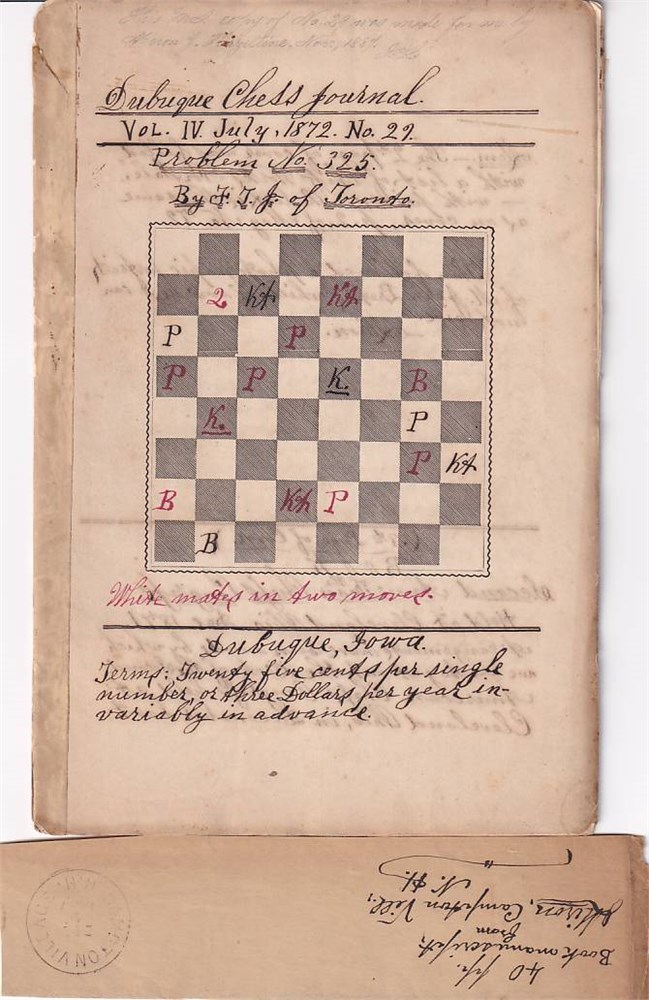 This   copy of No 29 was made for me by
Dubuque Chess Journal.
VOL. IV. July, 1872. No. 29.
Problem No. 325.
By F. T. J. of Toronto.
2 Kt Kt
P P
P P K. B
K. P
P Kt
B Kt P
B
White mates in two moves.
Dubuque, Iowa.
Terms: Twenty five cents per single
number, or three Dollars per year in-
variably in advance.
40 pp.
Book manuscript
from
Campton Vill.,
N. H.